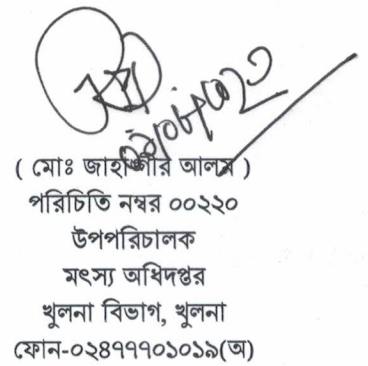 ( মোঃ জাহাঙ্গীর আলম )
পরিচিতি নম্বর ০০২২০
উপপরিচালক
মৎস্য অধিদপ্তর
খুলনা বিভাগ, খুলনা
ফোন-০২৪৭৭৭০১০১৯(অ)